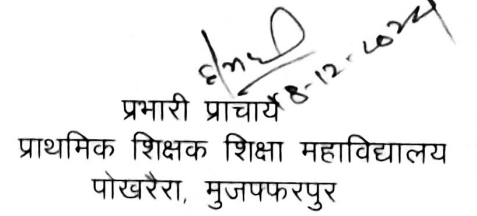 18-12-2024
प्रभारी प्राचार्य
प्राथमिक शिक्षक शिक्षा महाविद्यालय
पोखरैरा, मुजफ्फरपुर